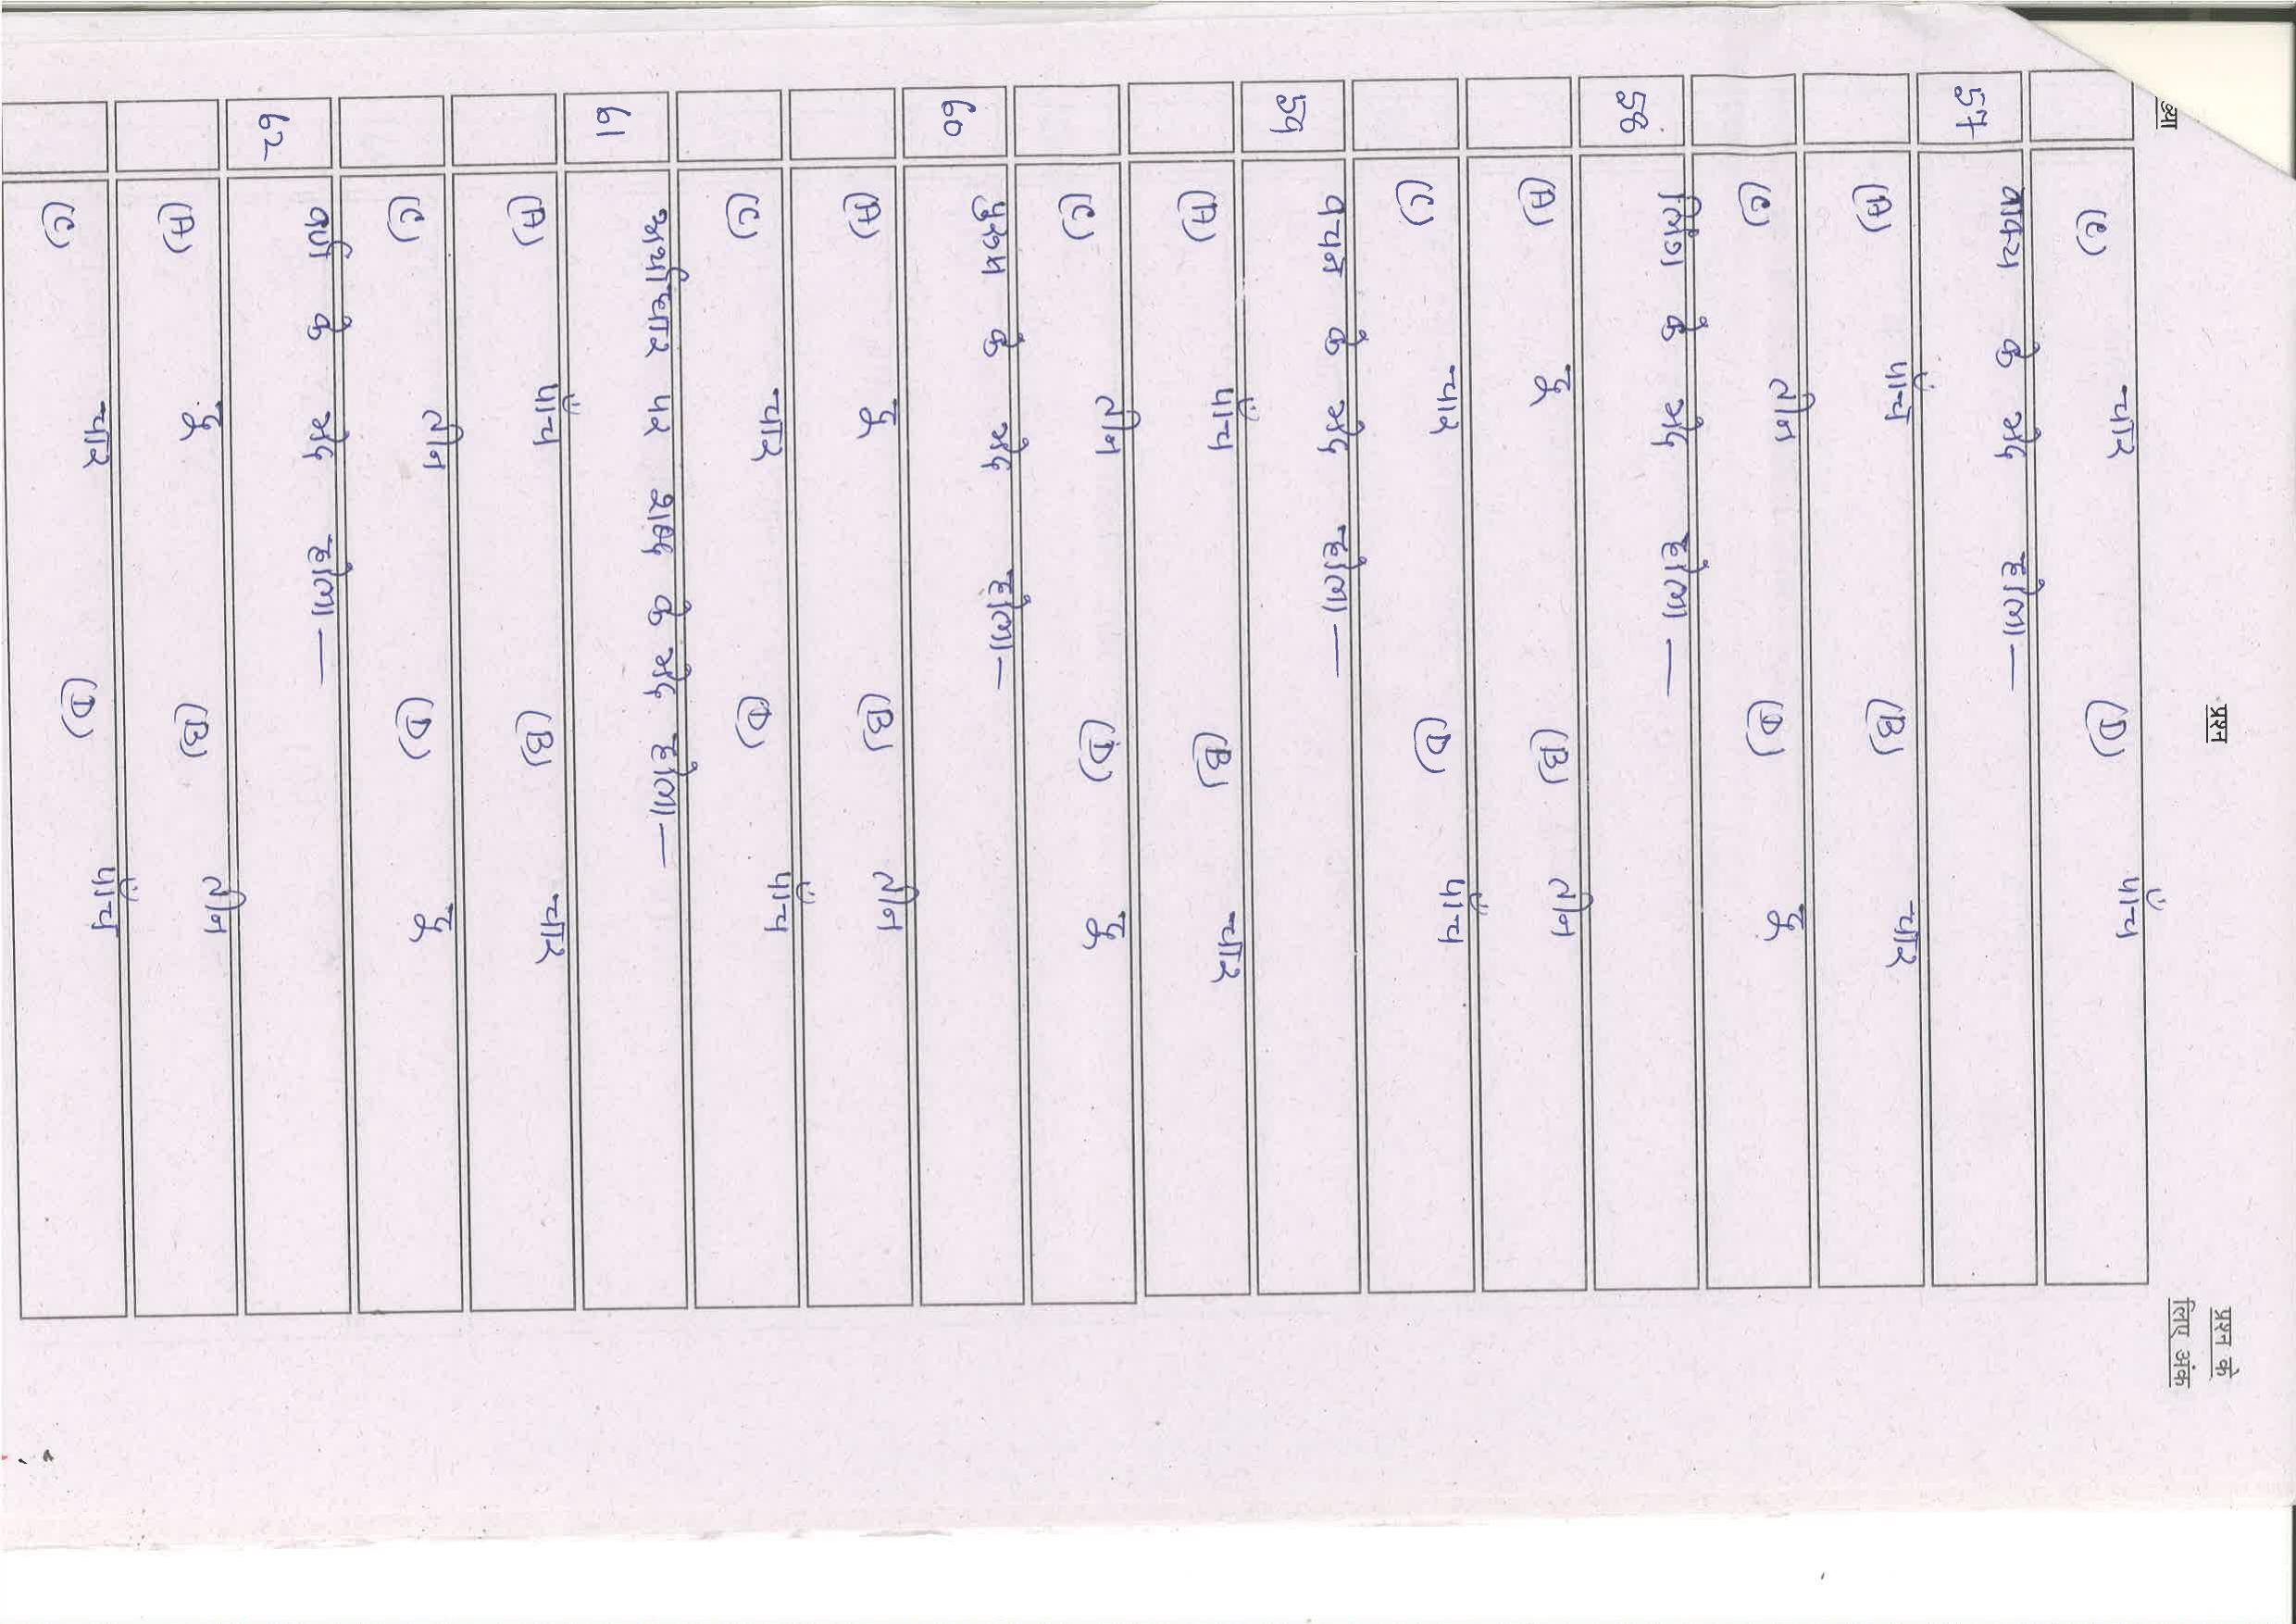 ख्या प्रश्न प्रश्न के
लिए अंक
(C) चार (D) पाँच
57 वाक्य के भेद होला —
(A) पाँच (B) चार
(C) तीन (D) दू
58 लिंग के भेद होला —
(A) दू (B) तीन
(C) चार (D) पाँच
59 वचन के भेद होला —
(A) पाँच (B) चार
(C) तीन (D) दू
60 पुरूष के भेद होला —
(A) दू (B) तीन
(C) चार (D) पाँच
61 अर्थाधार पर शब्द के भेद होला —
(A) पाँच (B) चार
(C) तीन (D) दू
62 वर्ण के भेद होला —
(A) दू (B) तीन
(C) चार (D) पाँच